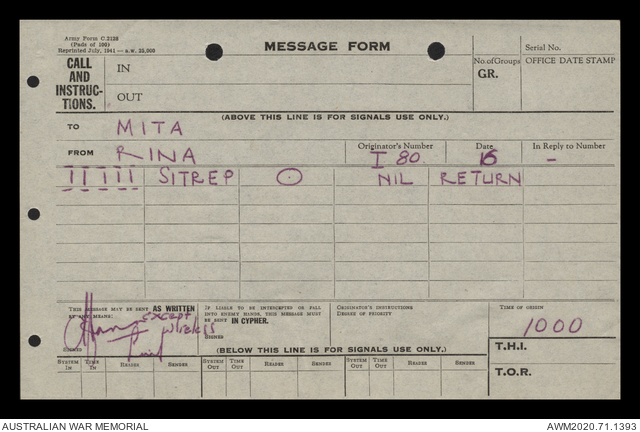 Army Form C.2128
(Pads of 100)
Reprinted July, 1941 — s.w. 25,000
MESSAGE FORM
Serial No.
CALL AND INSTRUC-TIONS.
IN
OUT
No. of Groups
GR.
OFFICE DATE STAMP
(ABOVE THIS LINE IS FOR SIGNALS USE ONLY.)
TO MITA
FROM RINA
Originator's Number
I 80.
Date
16
In Reply to Number
—
IIIII SITREP ⊙ NIL RETURN
THIS MESSAGE MAY BE SENT AS WRITTEN BY ANY MEANS.
except wireless
SIGNED
IF LIABLE TO BE INTERCEPTED OR FALL INTO ENEMY HANDS, THIS MESSAGE MUST BE SENT IN CYPHER.
SIGNED
ORIGINATOR'S INSTRUCTIONS
DEGREE OF PRIORITY
TIME OF ORIGIN
1000
(BELOW THIS LINE IS FOR SIGNALS USE ONLY.)
T.H.I.
SYSTEM IN TIME IN READER SENDER SYSTEM OUT TIME OUT READER SENDER SYSTEM OUT TIME OUT READER SENDER
T.O.R.
AUSTRALIAN WAR MEMORIAL
AWM2020.71.1393